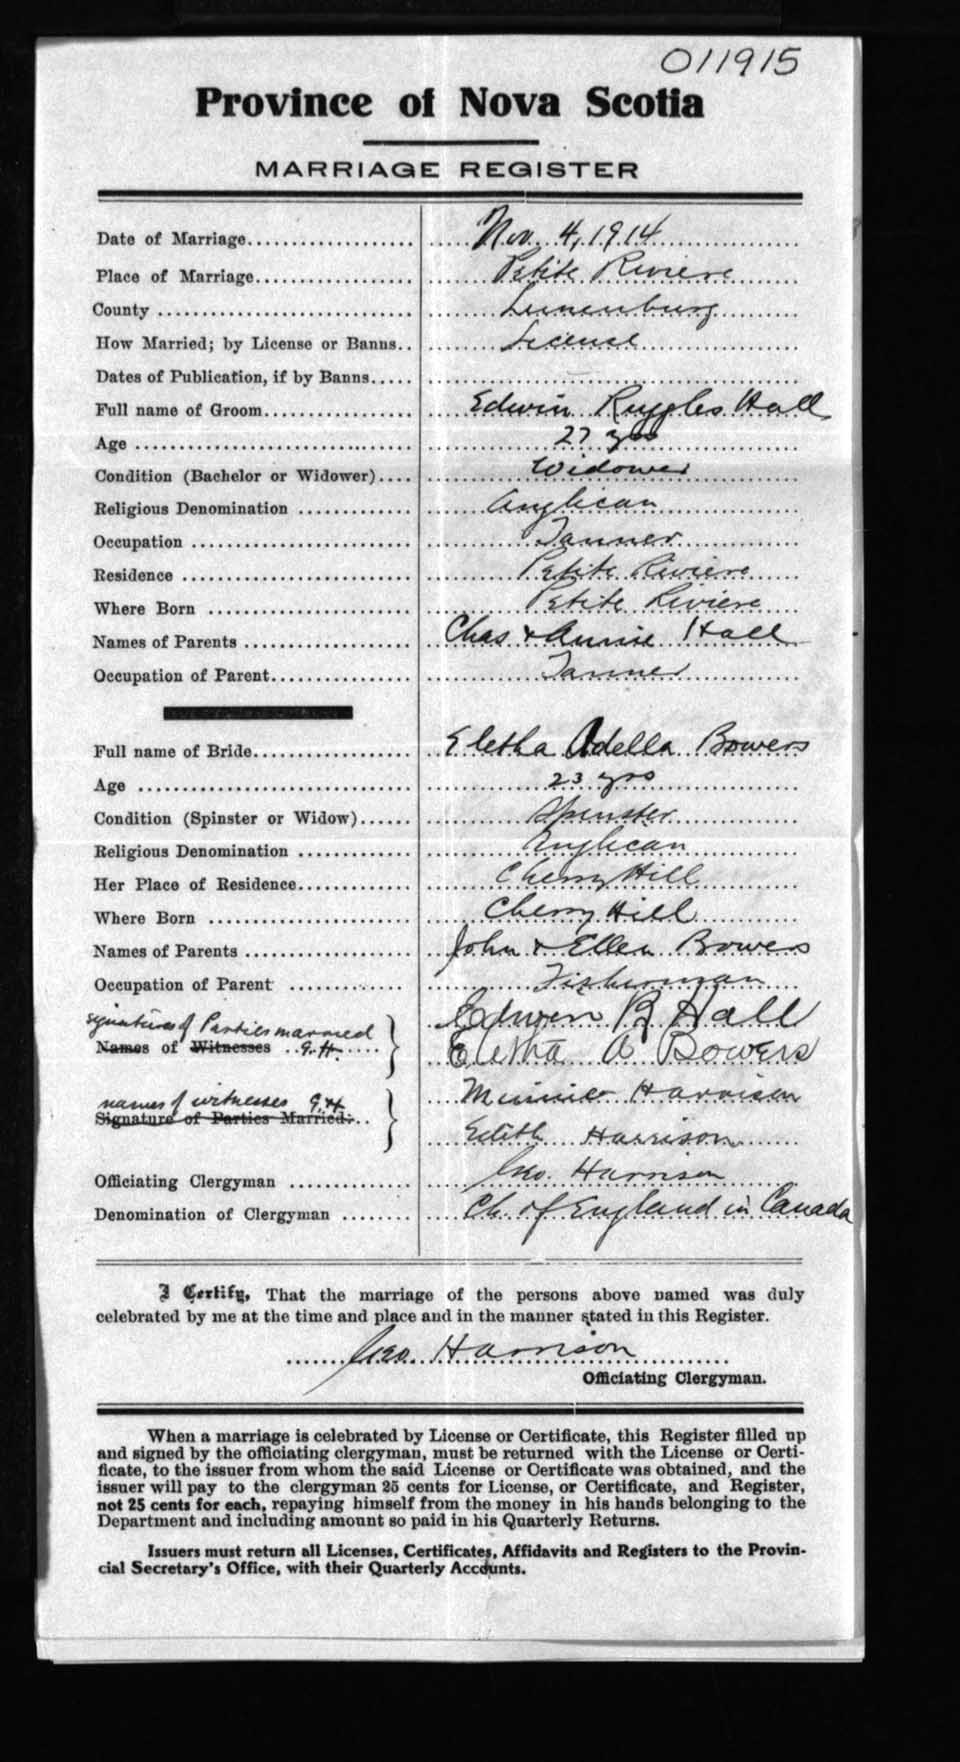 011915
Province of Nova Scotia
MARRIAGE REGISTER
Date of Marriage.................... Nov. 4, 1914
Place of Marriage................... Petite Riviere
County .............................. Lunenburg
How Married; by License or Banns.. License
Dates of Publication, if by Banns.....
Full name of Groom.................. Edwin Ruggles Hall
Age ................................. 27 yrs
Condition (Bachelor or Widower).... Widower
Religious Denomination ............. Anglican
Occupation .......................... Tanner
Residence ........................... Petite Riviere
Where Born ......................... Petite Riviere
Names of Parents .................... Chas & Annie Hall
Occupation of Parent................. Tanner
Full name of Bride................... Eletha Adella Bowers
Age ................................. 23 yrs
Condition (Spinster or Widow)...... Spinster
Religious Denomination ............. Anglican
Her Place of Residence............. Cherry Hill
Where Born ......................... Cherry Hill
Names of Parents .................... John & Ellen Bowers
Occupation of Parent .............. Fisherman
signatures of Parties married Edwin R Hall
Names of Witnesses ..G.H..... Eletha A Bowers
names of witnesses G.H Minnie Harrison
Signature of Parties Married:.. Edith Harrison
Officiating Clergyman .............. Geo. Harrison
Denomination of Clergyman ........ Ch. of England in Canada
I Certify, That the marriage of the persons above named was duly
celebrated by me at the time and place and in the manner stated in this Register.
Geo. Harrison
Officiating Clergyman.
When a marriage is celebrated by License or Certificate, this Register filled up
and signed by the officiating clergyman, must be returned with the License or Certi-
ficate, to the issuer from whom the said License or Certificate was obtained, and the
issuer will pay to the clergyman 25 cents for License, or Certificate, and Register,
not 25 cents for each, repaying himself from the money in his hands belonging to the
Department and including amount so paid in his Quarterly Returns.
Issuers must return all Licenses, Certificates, Affidavits and Registers to the Provin-
cial Secretary's Office, with their Quarterly Accounts.